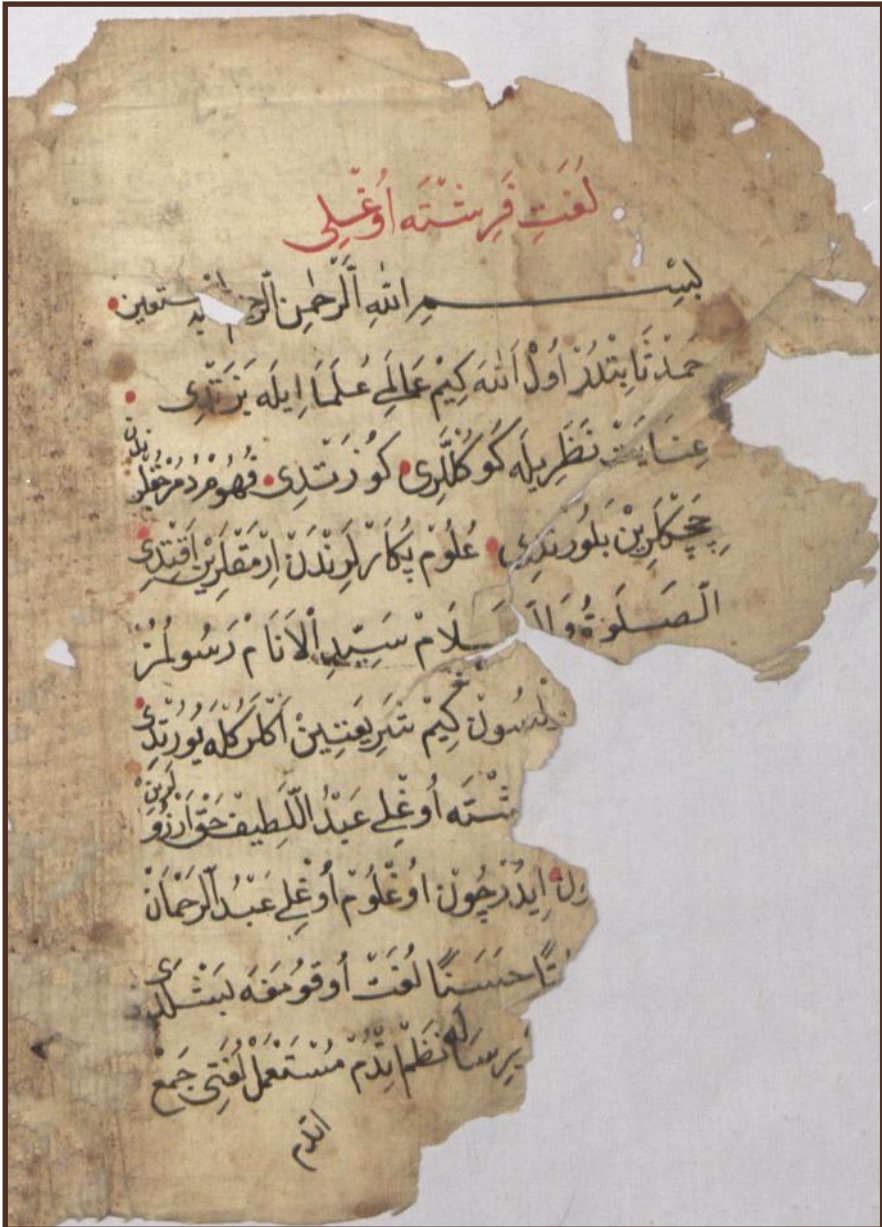 لُغَتِ فَرِشْتَه اُوغْلِی
بِسْمِ اللّٰهِ الرَّحْمٰنِ الرَّحِيم نستعين
حَمْدْ ثَابِتْدُرْ اَوُلْ اَللّٰهَ كِيمْ عَالَمِی عُلَمَا اِيلَه بَزَتْدِی
عِنَايَتْ نَظَرِيلَه كُوكُلَّرِی كُوزَتْدِی فُهُومْ
چِچَكْلَرِينْ بَلُورْتْدِی عُلُومْ پِكَارْلَرِنْدَنْ اِرْمَقْلَرِينْ اَقِتْدِی
الصَلٰوةُ وَالسَّلَامْ سَيِّدِ الْاَنَامْ رَسُولُمُزْ
اُلسُونْ كِيمْ شَرِيعَتِينْ يُورُتْدِی
شْتَه اُوغْلِی عَبْدُ اللَّطِيفْ حَقْ اَرْزُولَرِينْ
اِيدُرْ چُونْ اُوغْلُومْ اُوغْلِی عَبْدُ الرَّحْمَانْ
حَسَنًا لُغَتْ اُوقُومَغَه بَشْلَدِی
بِرْ رِسَالَه نَظْمْ اِتْدُمْ مُسْتَعْمَلْ لُغَتِی جَمْعْ
اتدم